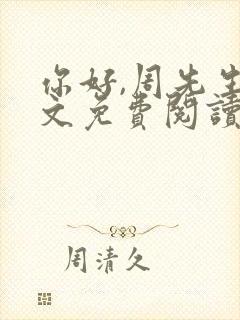 你好,周先生
文免費閱讀
周清久